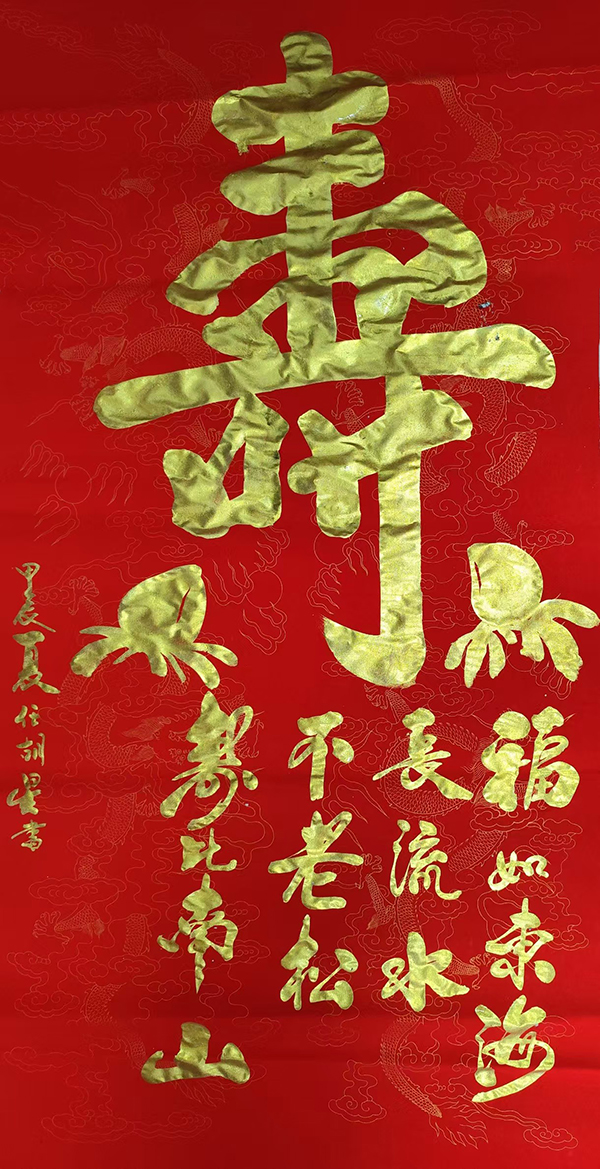 壽
福如東海
長流水
不老松
壽比南山
甲辰夏任胡星書